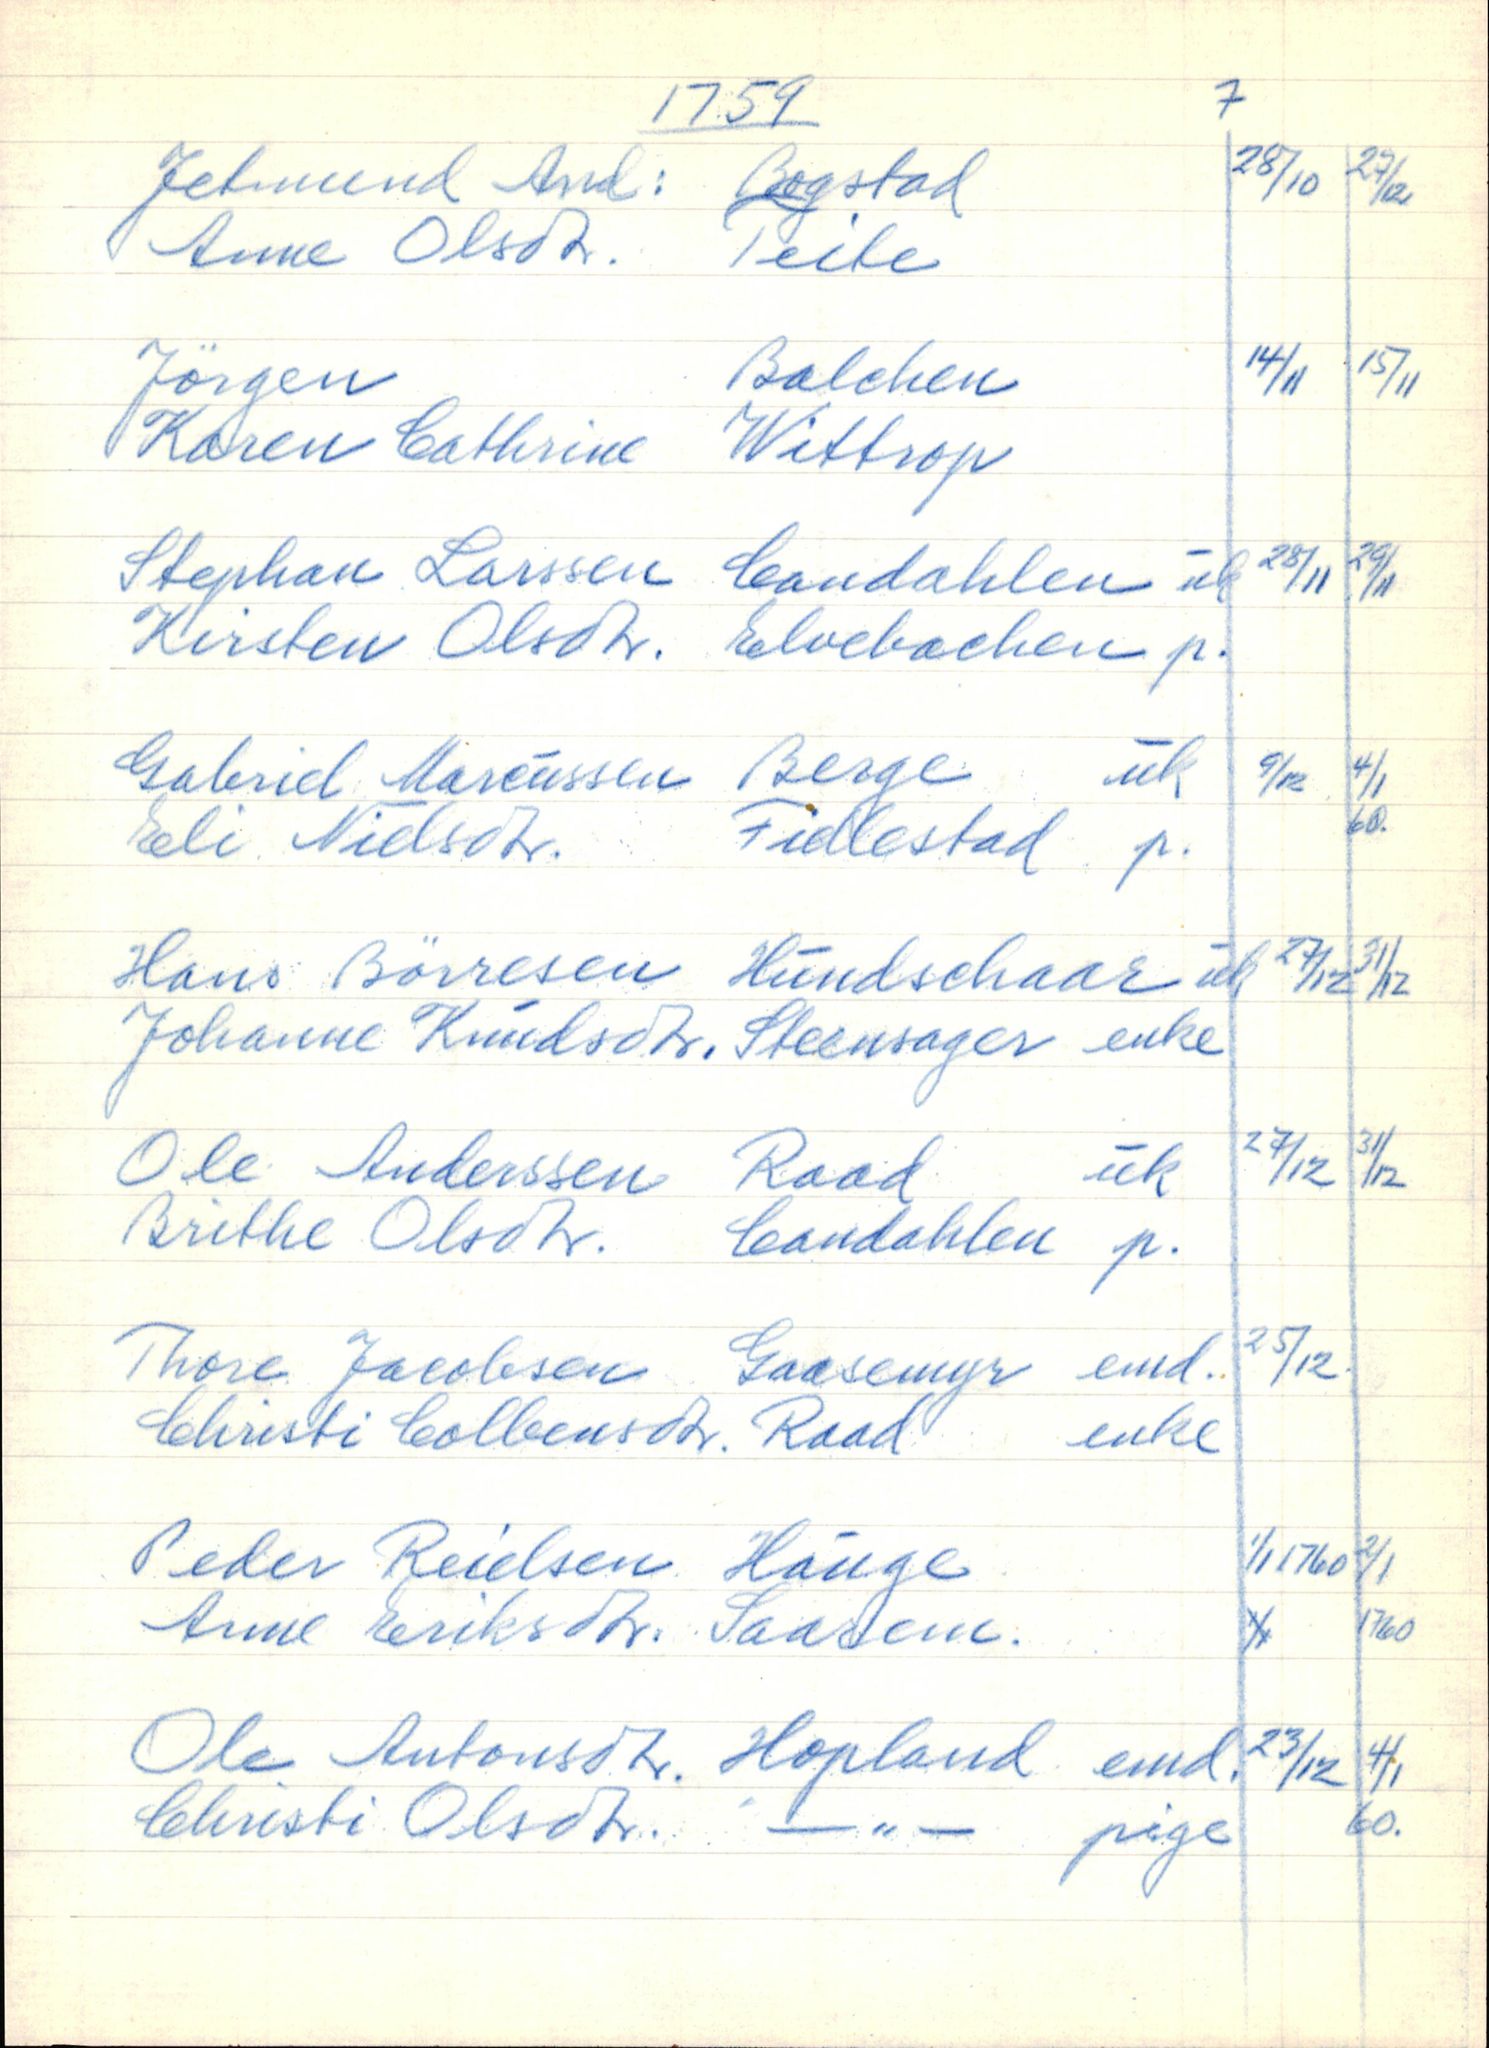 1759 7
Jetmund And: Bogstad 28/10 27/12
Anne Olsdtr. Teite
Jörgen Balchen 14/11 15/11
Karen Cathrine Wittrop
Stephan Larssen Candahlen ūk 28/11 29/11
Kirsten Olsdtr. Elvebachen p.
Gabriel Marcūssen Berge ūk 9/12 4/1
Eli Nielsdtr. Fidlestad p. 60.
Hans Börresen Hūndschaar ūk 27/12 31/12
Johanne Knūdsdtr. Steensager enke
Ole Anderssen Raad ūk 27/12 31/12
Brithe Olsdtr. Candahlen p.
Thore Jacobsen Gaasemyr emd. 25/12.
Christi Colbensdtr. Raad enke
Peder Reielsen Haūge 1/1 1760 2/1
Anne Eriksdtr. Saasem. 1760
Ole Antonsdtr. Hopland emd. 23/12 4/1
Christi Olsdtr. —"— pige 60.